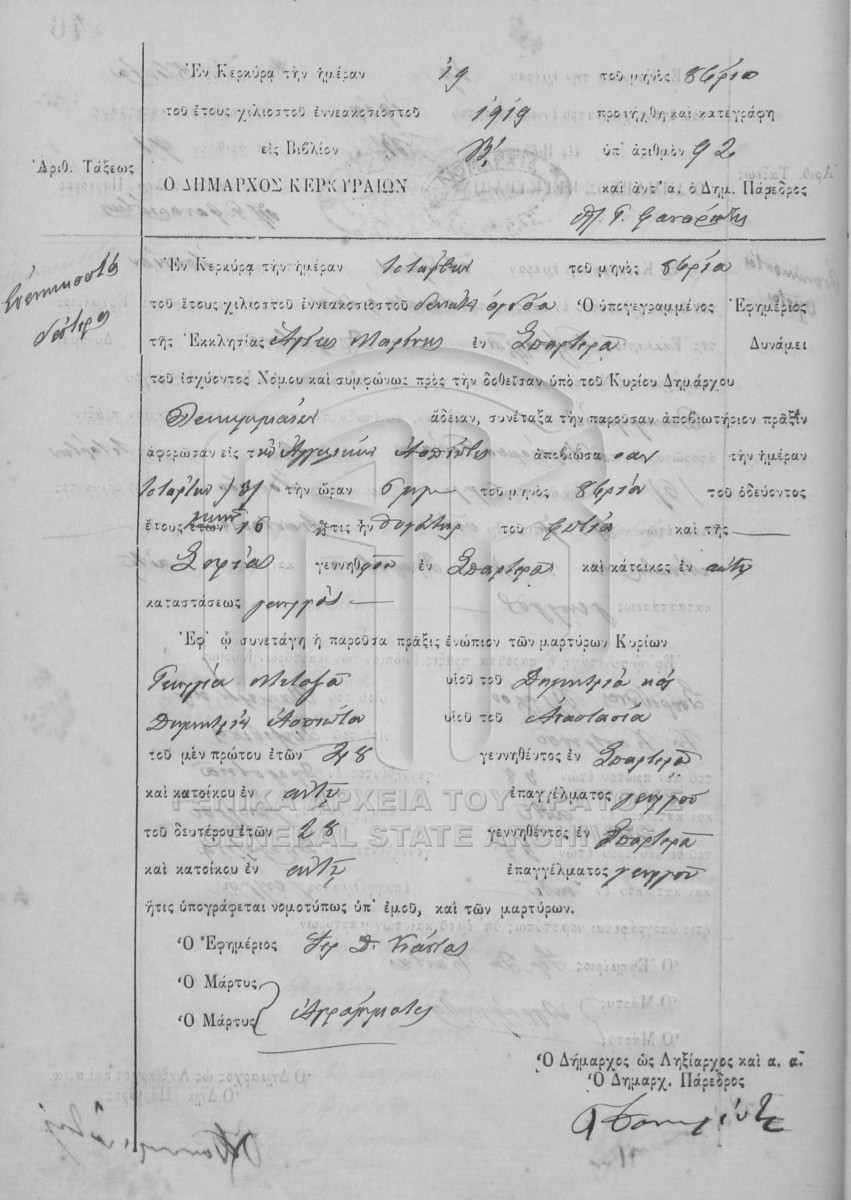 Ἐν Κερκύρᾳ τὴν ἡμέραν 19 τοῦ μηνὸς 8βρίου
τοῦ ἔτους χιλιοστοῦ ἐννεακοσιοστοῦ 1919 προσήχθη καὶ κατεγράφη
εἰς Βιβλίον Β' ὑπ' ἀριθμὸν 92
Ἀριθ. Τάξεως
Ο ΔΗΜΑΡΧΟΣ ΚΕΡΚΥΡΑΙΩΝ καὶ ἀντ' α. ὁ Δημ. Πάρεδρος
Ἐν Κερκύρᾳ τὴν ἡμέραν τετάρτην τοῦ μηνὸς 8βρίου
τοῦ ἔτους χιλιοστοῦ ἐννεακοσιοστοῦ Ὁ ὑπογεγραμμένος Ἐφημέριος
τῆς Ἐκκλησίας Ἁγίας Μαρίνης ἐν Σπαρτερᾷ Δυνάμει
τοῦ ἰσχύοντος Νόμου καὶ συμφώνως πρὸς τὴν δοθεῖσαν ὑπὸ τοῦ Κυρίου Δημάρχου
Λευκιμμαίων ἄδειαν, συνέταξα τὴν παροῦσαν ἀποβιωτήριον πρᾶξιν
ἀφορῶσαν εἰς τὴν Ἀγγελικὴν Ἀσπιώτη ἀποβιώσασαν τὴν ἡμέραν
τετάρτην τὴν ὥραν 5 μμ τοῦ μηνὸς 8βρίου τοῦ ὁδεύοντος
ἔτους 16 ἥτις ἦν θυγάτηρ τοῦ Φωτίου καὶ τῆς
Σοφίας γεννηθεῖσα ἐν Σπαρτερᾷ καὶ κάτοικος ἐν αὐτῇ
καταστάσεως γεωργὸς
Ἐφ' ᾧ συνετάγη ἡ παροῦσα πρᾶξις ἐνώπιον τῶν μαρτύρων Κυρίων
Γεωργίου Μεταξᾶ υἱοῦ τοῦ Δημητρίου καὶ
Δημητρίου Ἀσπιώτου υἱοῦ τοῦ Ἀναστασίου
τοῦ μὲν πρώτου ἐτῶν 48 γεννηθέντος ἐν Σπαρτερᾷ
καὶ κατοίκου ἐν αὐτῇ ἐπαγγέλματος γεωργοῦ
ΓΕΝΙΚΑ ΑΡΧΕΙΑ ΤΟΥ ΚΡΑΤΟΥΣ
τοῦ δευτέρου ἐτῶν 28 γεννηθέντος ἐν Σπαρτερᾷ
GENERAL STATE ARCHIVES
καὶ κατοίκου ἐν αὐτῇ ἐπαγγέλματος γεωργοῦ
ἥτις ὑπογράφεται νομοτύπως ὑπ' ἐμοῦ, καὶ τῶν μαρτύρων.
Ὁ Ἐφημέριος Ἱερ Δ.
Ὁ Μάρτυς
Ὁ Μάρτυς Ἀγράμματοι
Ὁ Δήμαρχος ὡς Ληξίαρχος καὶ α. α.
Ὁ Δημαρχ. Πάρεδρος